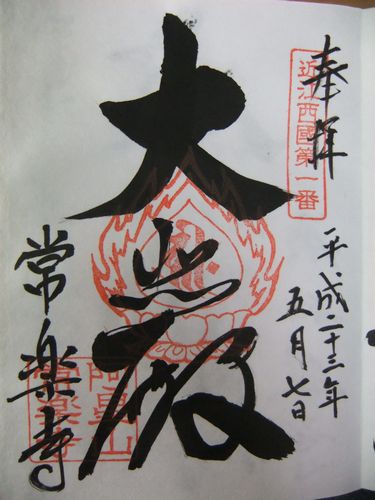 奉拝
近江西國第一番
平成二十三年
五月七日
大悲殿
常楽寺
阿星山
常楽寺